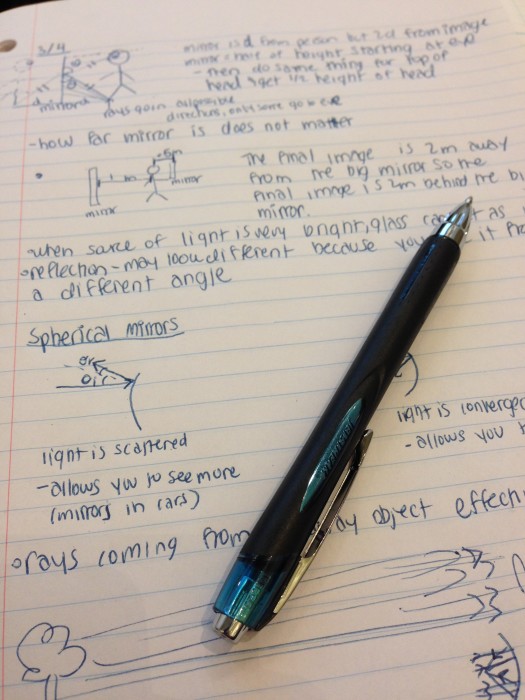 3/4
mirror is d from person but 2d from image
mirror = half of height, starting at eye
- then do same thing for top of
head → get 1/2 height of head
mirror
rays go in all possible
directions, only some go to eye
- how far mirror is does not matter
.5m
1m
mirror
mirror
The final image is 2m away
from the big mirror so the
final image is 2m behind the bi
mirror.
when source of light is very bright, glass can as
reflection - may look different because you it fro
a different angle
Spherical mirrors
θr
θi
light is scattered
- allows you to see more
(mirrors in cars)
light is converged
- allows you
rays coming from object effecti